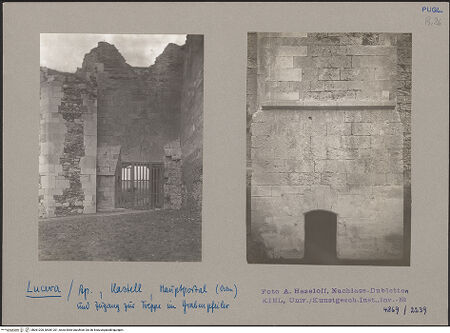 PUGL.
B.26
Lucera / Ap., Kastell, Hauptportal (Oran)
und Zugang zur Treppe im Grabenpfeiler
Foto A. Haseloff, Nachlass-Dublette
KIEL, Univ./Kunstgesch.Inst., Inv.-No
4869 / 2239